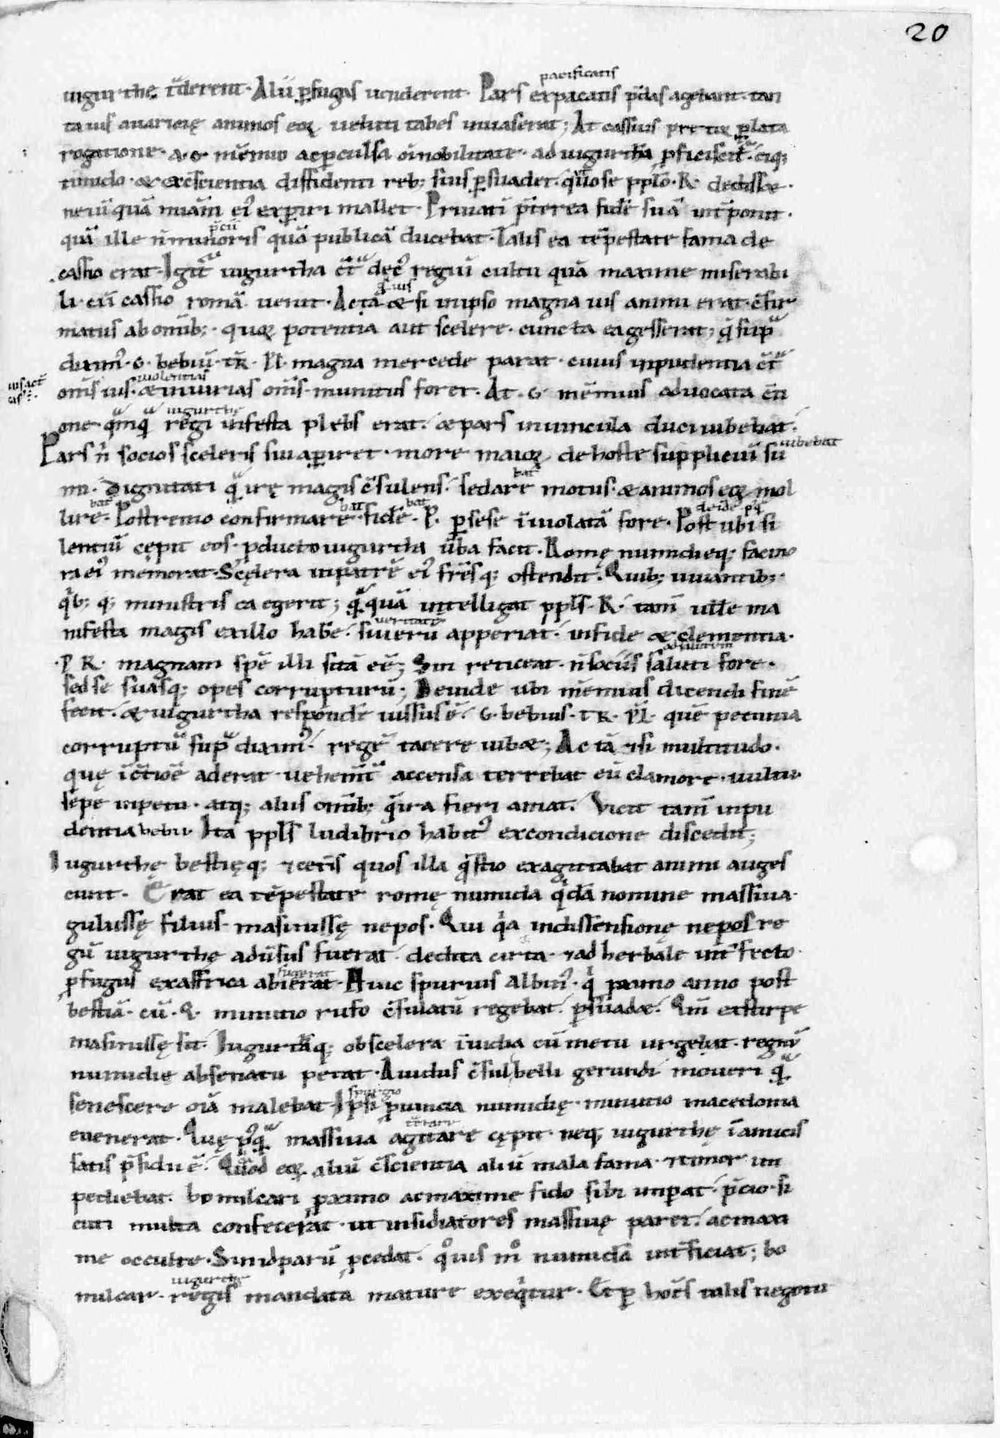 20
pacificatis
iugurthę t̄derent · Alii ꝑfugas uenderent · Pars expacatis p̄das agebant · tan
ta uis auaricię animos eoꝝ ueluti tabes inuaserat; At cassius pretor ꝑlata
rogatione · a · G · mēmio ac ꝑculsa oī nobilitate · ad iugurthā ꝓficiscit̄ · eiq;
timido · & excscientia diffidenti reb; suis ꝑsuadet · qūo se ppło · R · dedisset ·
ne uim quā miām ei' exꝑiri mallet · Priuatī p̄terea fidē suā int̄ponit ·
quā ille n̄ minoris quā publicā ducebat · Talis ea tēpestate fama de
cassio erat · Igit̄ iugurtha c̄t dec' regiū cultu quā maxime miserabi
li · cū cassio romā uenit · Ac tā & si inipso magna uis animi erat · c̄fir
matus ab omīb; · quoꝝ potentia aut scelere · cuncta ea gesserat; q̄ sup̄
diximus · G · bebiū · tR · Pl · magna mercede parat · cuius inpudentia c̄t
uiolentias
omīs ius · & iniurias omīs · munitus foret · At · G · mēmius aduocata c̄ti
iugurthę
one · q̄mq̄ regi infesta plebs erat · & pars inuincula duci iubebat ·
Pars n̄ socios sceleris sui aꝑiret · more maioꝝ de hoste suppliciū su
iubebat
mi · Dignitati q̄ irę magis c̄sulens · sedare motus · & animos eoꝝ mol
lire · Postremo confirmare · fidē · P · ꝑ sese īuiolatā fore · Post ubi si
lentiū cępit eos · ꝓducto iugurtha ūba facit · Romę numidięq; facino
ra ei' memorat · Scelera inpatrē ei' frēsq; ostendit · Quib; iuuantib; ·
q̄b; q; ministris ea egerit; q̄quā intelligat pplś · R · tam̄ uelle ma
ueritatē
nifesta magis exillo habē · si uerū apperiat · infide & clementia ·
· P R · magnam spē illi sitā eē; Sin reticeat · n̄ sociis saluti fore ·
sed se suasq; opes corrupturū; Deinde ubi mēmius dicendi finē
fecit · & iugurtha respondē iussus ē · G · bebius · TR · Pl · quē pecunia
corruptū sup̄ diximus · regē tacere iub&; Ac tā &si multitudo ·
quę īc̄tiōe aderat uehem̄t accensa terrebat eū clamore · uultu
sępe inpetu · atq; aliis omīb; q̄ ira fieri amat · Vicit tam̄ inpu
dentia bebii Ita pplś ludibrio habit' excondicione discedit;
Iugurthę bestięq; & cet̄is quos illa q̄stio exagitabat animi auges
cunt · Erat ea tēpestate romę numida q̄dā nomine massiua
gulussę filius masinissę nepos · Qui q̄a indissensionę nepos re
gū iugurthę adūsus fuerat dedita cirta · & adherbale int̄fecto
fugerat
ꝓfugus exaffrica abierat · Huic spurius Albin' · q̄ pximo anno post
bestiā · cū · Q · minutio rufo c̄sulatū regebat ꝑsuad& · Qm̄ exstirpe
masinissę sit · Iugurthāq; obscelera īuidia cū metu urgebat · regnū
numidię absenatu petat · Auidus c̄sul belli gerundi moueri q̄
senescere oīa malebat Ipsi ꝓuincia numidię · minutio macedonia
euenerat · Quę pq̄ massiua agitare cępit neq; iugurthę ī amicis
satis p̄sidii ē · Quod eoꝝ aliū c̄scientia aliū mala fama · & timor im
pediebat · bomilcari pximo ac maxime fido sibi imꝑat · p̄cio · si
cuti multa confecerat · ut insidiatores massiuę paret · ac maxi
me occulte · Sin id parū ꝓcedat · quouis mō numidā int̄ficiat; bo
iugurthę
milcar · regis mandata mature exeq̄tur · Et ꝑ hoīes talis negotii